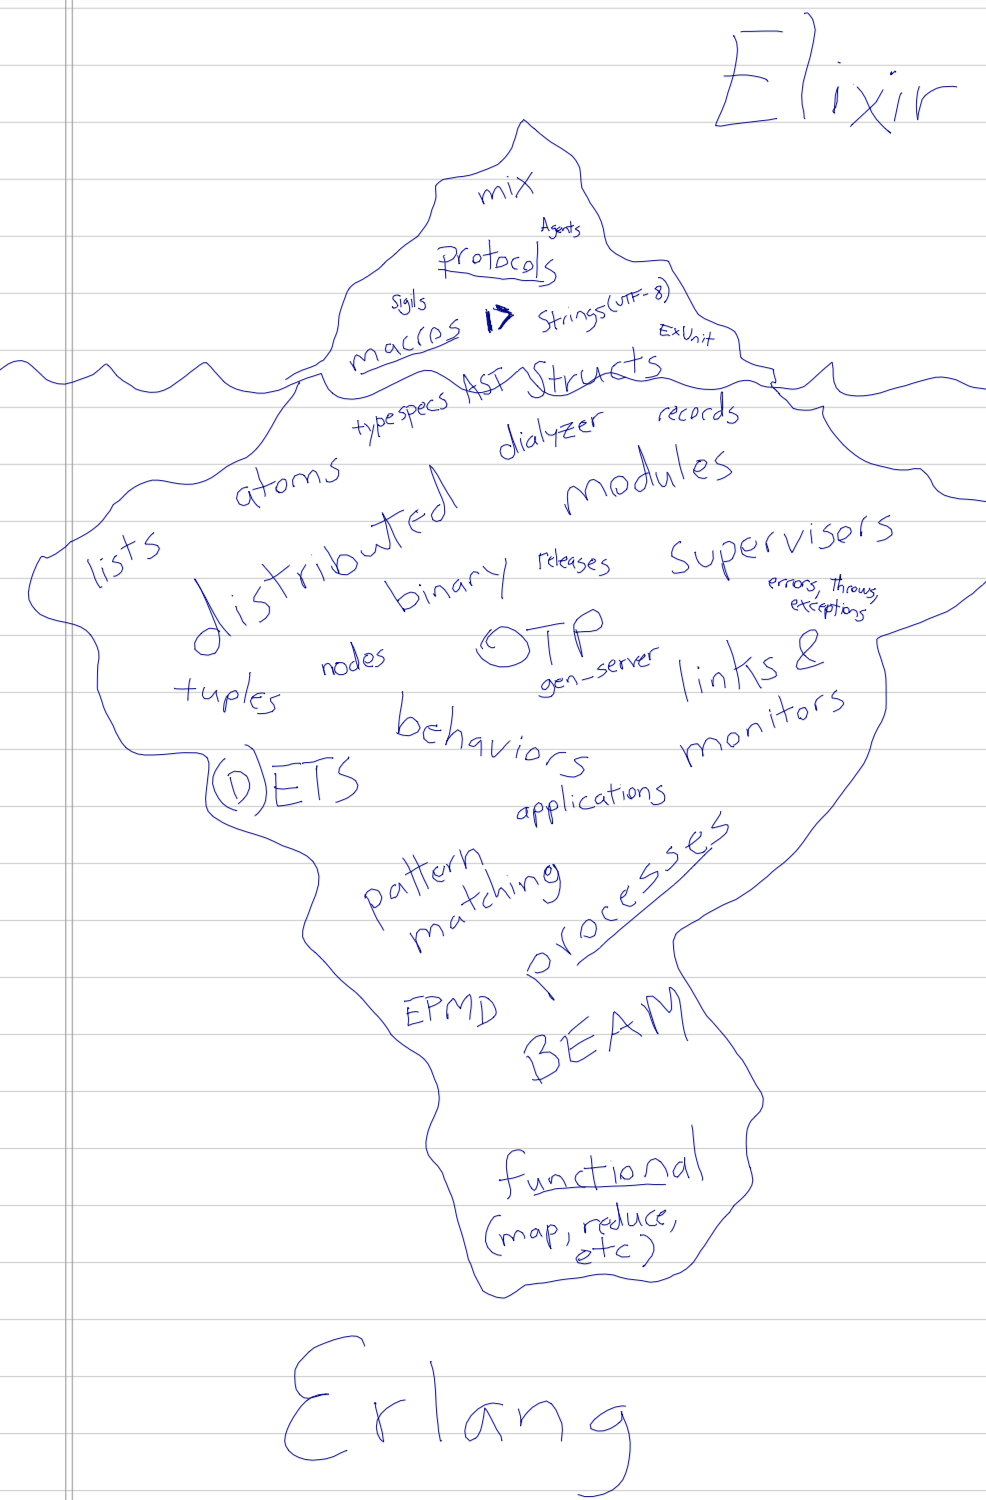 Elixir
mix
Agents
protocols
sigils
macros |> Strings(UTF-8)
ExUnit
AST Structs
typespecs
dialyzer
records
atoms
modules
lists
distributed
binary
releases
supervisors
errors, throws,
exceptions
OTP
gen_server
nodes
tuples
links &
monitors
behaviors
(D)ETS
applications
pattern
matching
processes
EPMD
BEAM
functional
(map, reduce,
etc)
Erlang